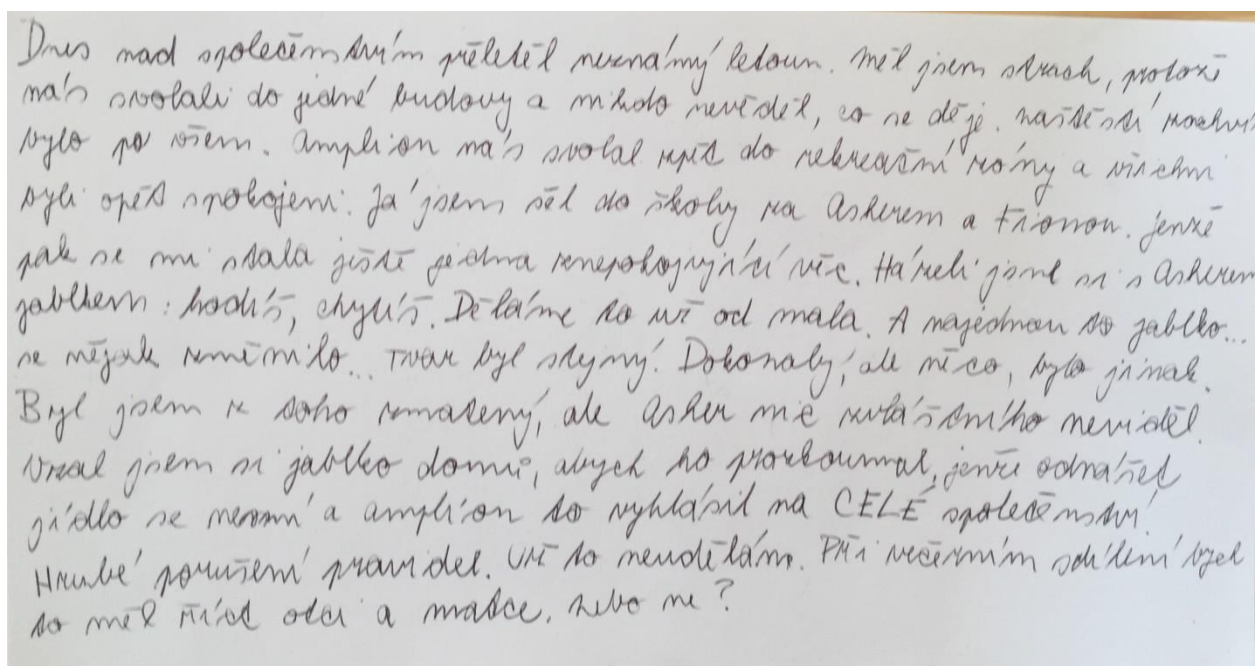 Dnes nad společenstvím přeletěl neznámý letoun. Měl jsem strach, protože
nás svolali do jedné budovy a nikdo nevěděl, co se děje. naštěstí
bylo po všem. Amplion nás svolal zpět do rekreační zóny a všichni
byli opět spokojeni. Já jsem šel do školy za Asherem a Fionou. jenže
pak se mi stala ještě jedna znepokojující věc. Házeli jsme si s Asherem
jablkem: hodíš, chytíš. Děláme to už od mala. A najednou to jablko...
se nějak změnilo... Tvar byl stejný. Dokonalý, ale něco, bylo jinak.
Byl jsem z toho zmatený, ale Asher nic zvláštního neviděl.
Vzal jsem si jablko domů, abych ho prozkoumal, jenže odnášet
jídlo se nesmí a amplion to vyhlásil na CELÉ společenství.
Hrubé porušení pravidel. Už to neudělám. Při večerním sdílení bych
to měl říct otci a matce. nebo ne?